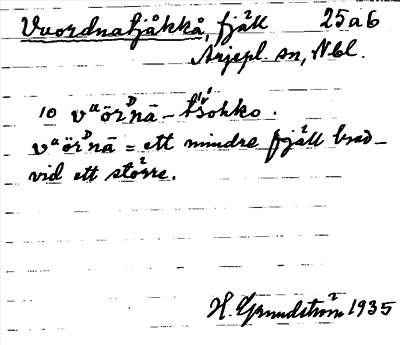 Vuordnatjåkkå, fjäll 25a6
Arjepl. sn, Nbl.
10 vᵘörᴰnā – tšohko.
vᵘörᴰnā = ett mindre fjäll bred-
vid ett större.
H. Grundström 1935